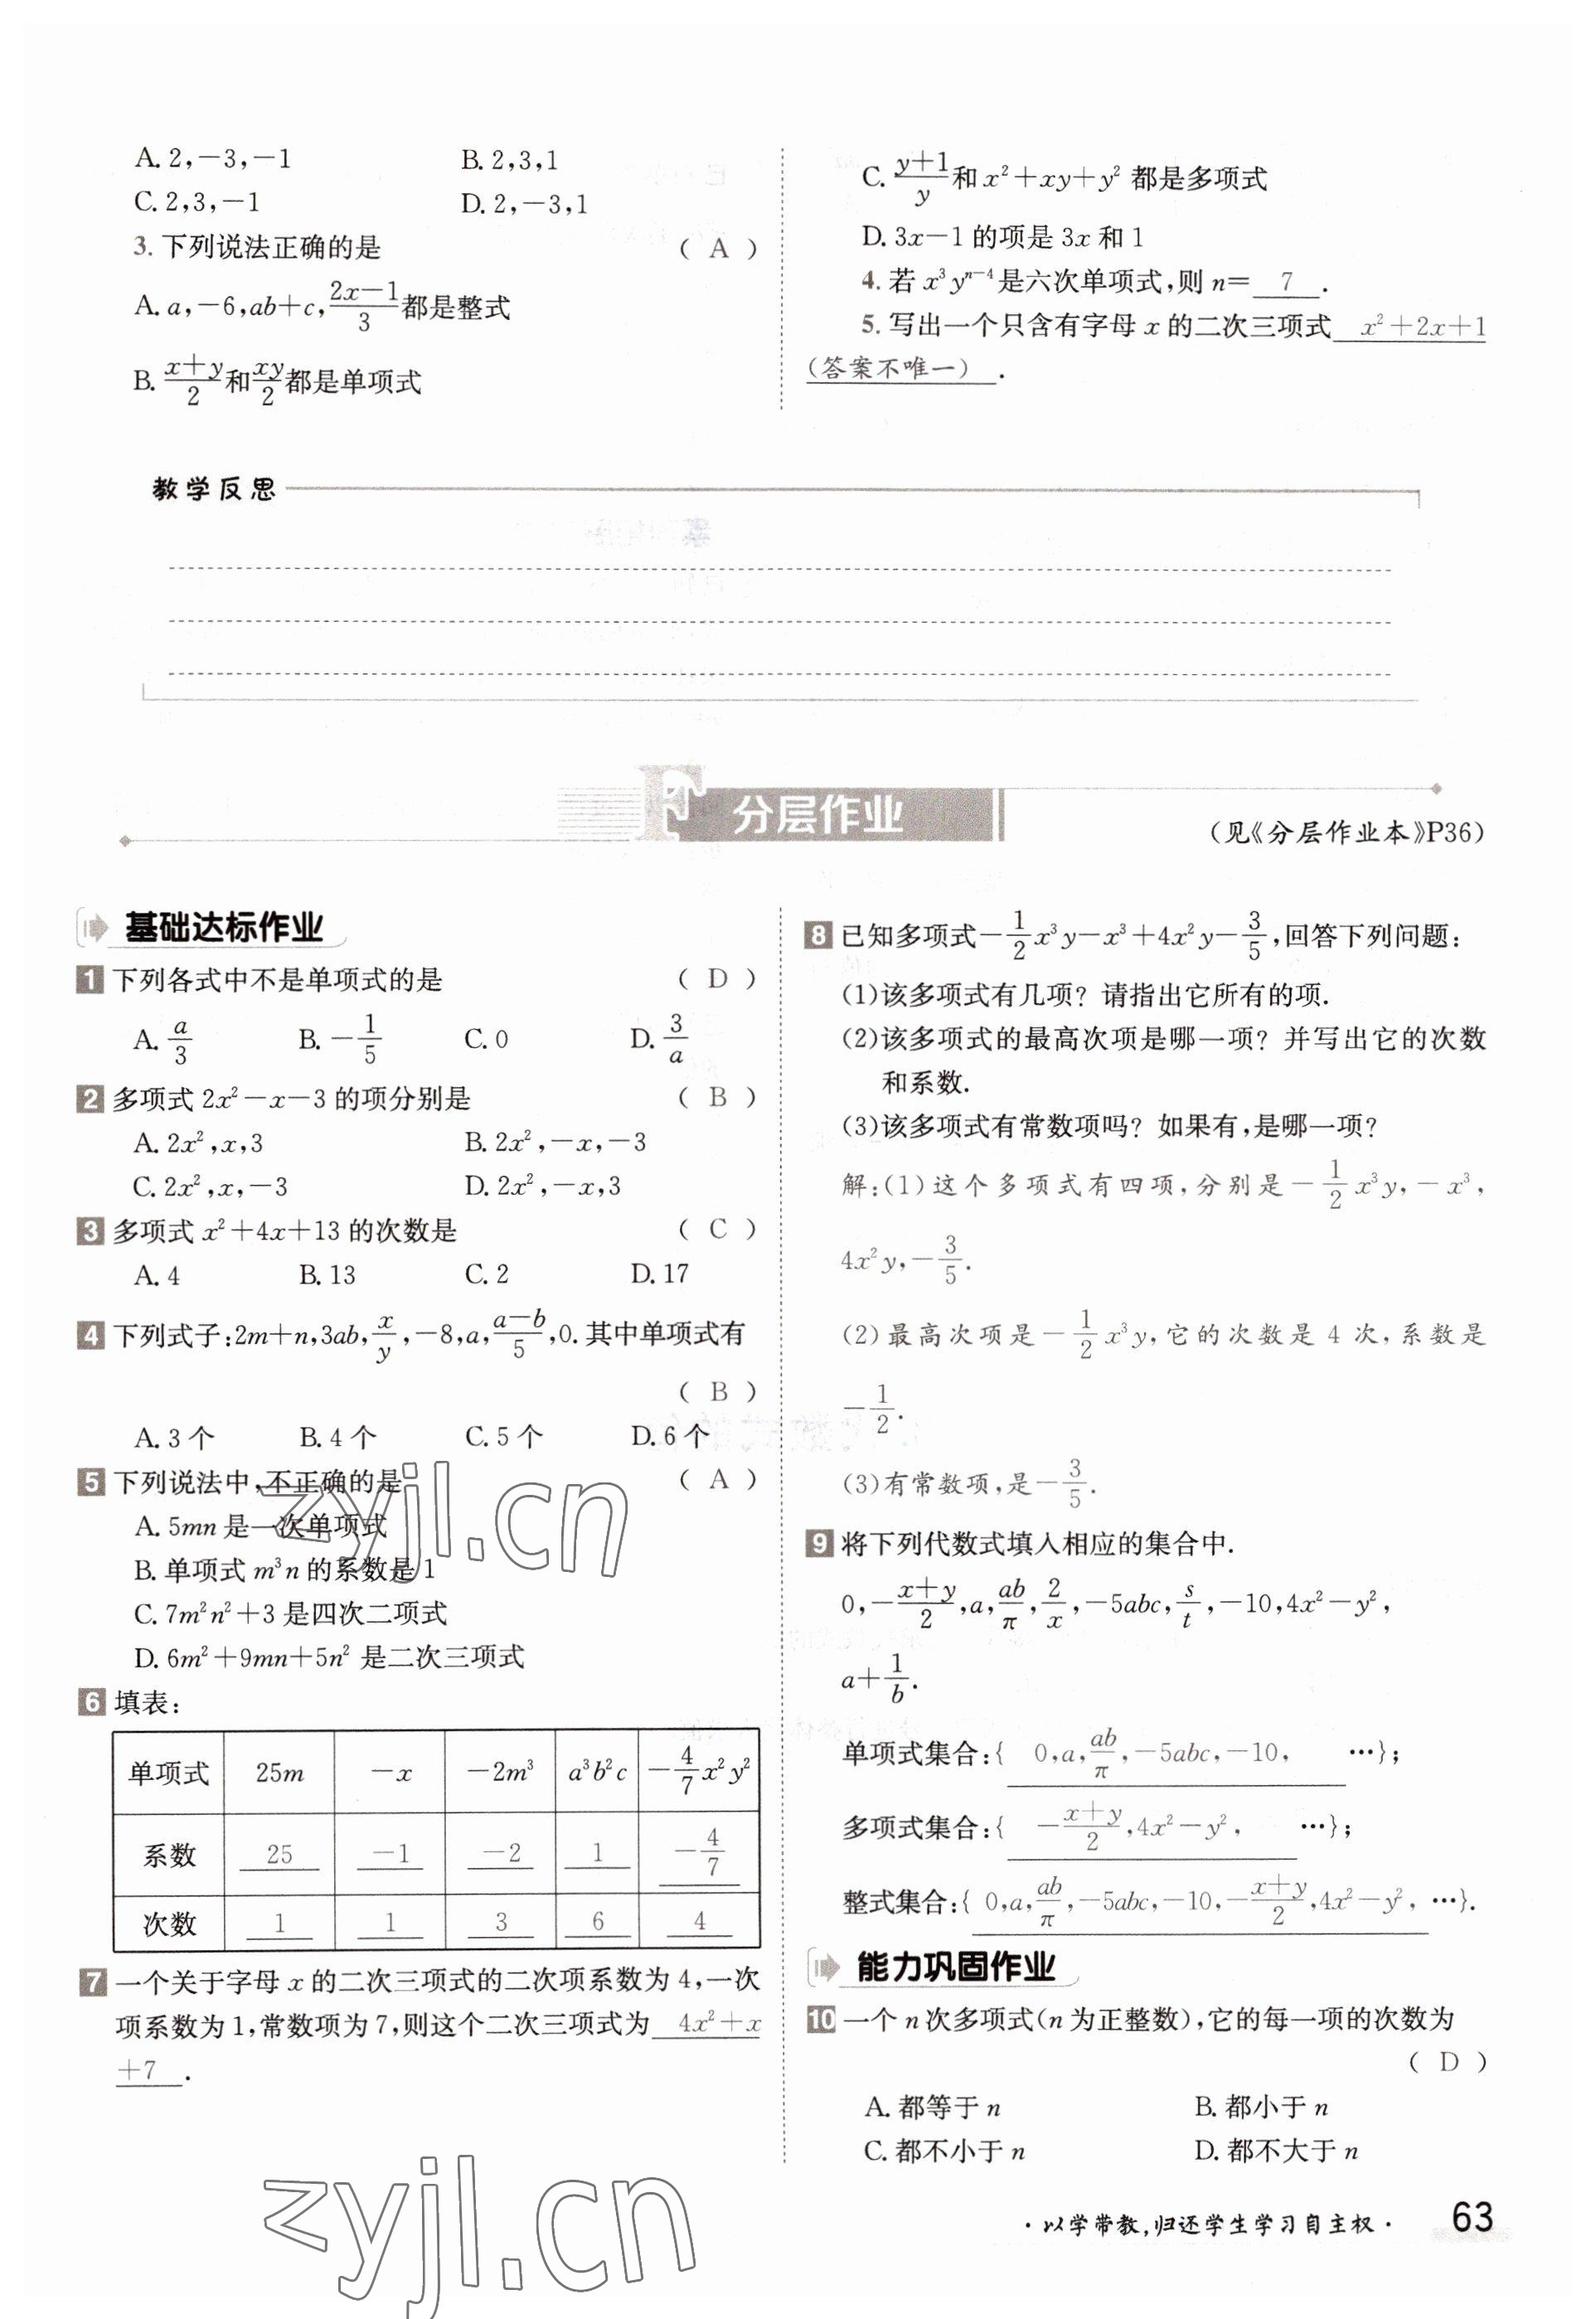 A. 2,−3,−1 B. 2,3,1
C. 2,3,−1 D. 2,−3,1
3. 下列说法正确的是 ( A )
A. a,−6,ab+c,(2x−1)/3都是整式
B. (x+y)/2和xy/2都是单项式
C. (y+1)/y和x²+xy+y² 都是多项式
D. 3x−1 的项是 3x 和 1
4. 若 x³yⁿ⁻⁴是六次单项式,则 n= 7 .
5. 写出一个只含有字母 x 的二次三项式 x²+2x+1
(答案不唯一) .
教学反思
F 分层作业
(见《分层作业本》P36)
基础达标作业
1 下列各式中不是单项式的是 ( D )
A. a/3 B. −1/5 C. 0 D. 3/a
2 多项式 2x²−x−3 的项分别是 ( B )
A. 2x²,x,3 B. 2x²,−x,−3
C. 2x²,x,−3 D. 2x²,−x,3
3 多项式 x²+4x+13 的次数是 ( C )
A. 4 B. 13 C. 2 D. 17
4 下列式子:2m+n,3ab,x/y,−8,a,(a−b)/5,0. 其中单项式有
( B )
A. 3 个 B. 4 个 C. 5 个 D. 6 个
5 下列说法中,不正确的是 ( A )
A. 5mn 是一次单项式
B. 单项式 m³n 的系数是 1
C. 7m²n²+3 是四次二项式
D. 6m²+9mn+5n² 是二次三项式
6 填表:
单项式 25m −x −2m³ a³b²c −4/7x²y²
系数 25 −1 −2 1 −4/7
次数 1 1 3 6 4
7 一个关于字母 x 的二次三项式的二次项系数为 4,一次
项系数为 1,常数项为 7,则这个二次三项式为 4x²+x
+7 .
8 已知多项式−1/2x³y−x³+4x²y−3/5,回答下列问题:
(1)该多项式有几项? 请指出它所有的项.
(2)该多项式的最高次项是哪一项? 并写出它的次数
和系数.
(3)该多项式有常数项吗? 如果有,是哪一项?
解:(1)这个多项式有四项,分别是−1/2x³y,−x³,
4x²y,−3/5.
(2)最高次项是−1/2x³y,它的次数是 4 次,系数是
−1/2.
(3)有常数项,是−3/5.
9 将下列代数式填入相应的集合中.
0,−(x+y)/2,a,ab/π,2/x,−5abc,s/t,−10,4x²−y²,
a+1/b.
单项式集合:{ 0,a,ab/π,−5abc,−10, …};
多项式集合:{ −(x+y)/2,4x²−y², …};
整式集合:{ 0,a,ab/π,−5abc,−10,−(x+y)/2,4x²−y², …}.
能力巩固作业
10 一个 n 次多项式(n 为正整数),它的每一项的次数为
( D )
A. 都等于 n B. 都小于 n
C. 都不小于 n D. 都不大于 n
·以学带教,归还学生学习自主权· 63
zyjl.cn
zyjl.cn